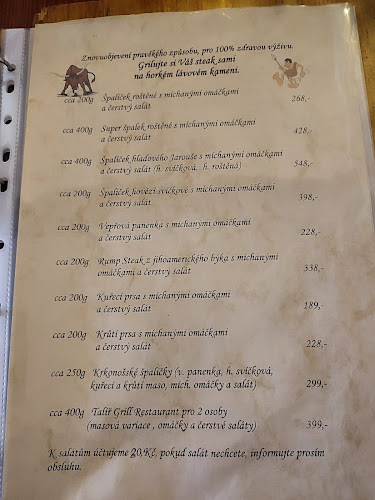 Znovuobjevení pravěkého způsobu, pro 100% zdravou výživu.
Grilujte si Váš steak sami
na horkém lávovém kameni.
cca 200g Špalíček roštěné s míchanými omáčkami 268,-
a čerstvý salát
cca 400g Super špalek roštěné s míchanými omáčkami 428,-
a čerstvý salát
cca 400g Špalíček hladového Jarouše s míchanými omáčkami 548,-
a čerstvý salát (h. svíčková, h. roštěná)
cca 200g Špalíček hovězí svíčkové s míchanými omáčkami 398,-
a čerstvý salát
cca 200g Vepřová panenka s míchanými omáčkami 228,-
a čerstvý salát
cca 200g Rump Steak z jihoamerického býka s míchanými 338,-
omáčkami a čerstvý salát
cca 200g Kuřecí prsa s míchanými omáčkami 189,-
a čerstvý salát
cca 200g Krůtí prsa s míchanými omáčkami 228,-
a čerstvý salát
cca 250g Krkonošské špalíčky (v. panenka, h. svíčková,
kuřecí a krůtí maso, mích. omáčky a salát) 299,-
cca 400g Talíř Grill Restaurant pro 2 osoby
(masová variace , omáčky a čerstvé saláty) 399,-
K salátům účtujeme 20,Kč, pokud salát nechcete, informujte prosím
obsluhu.